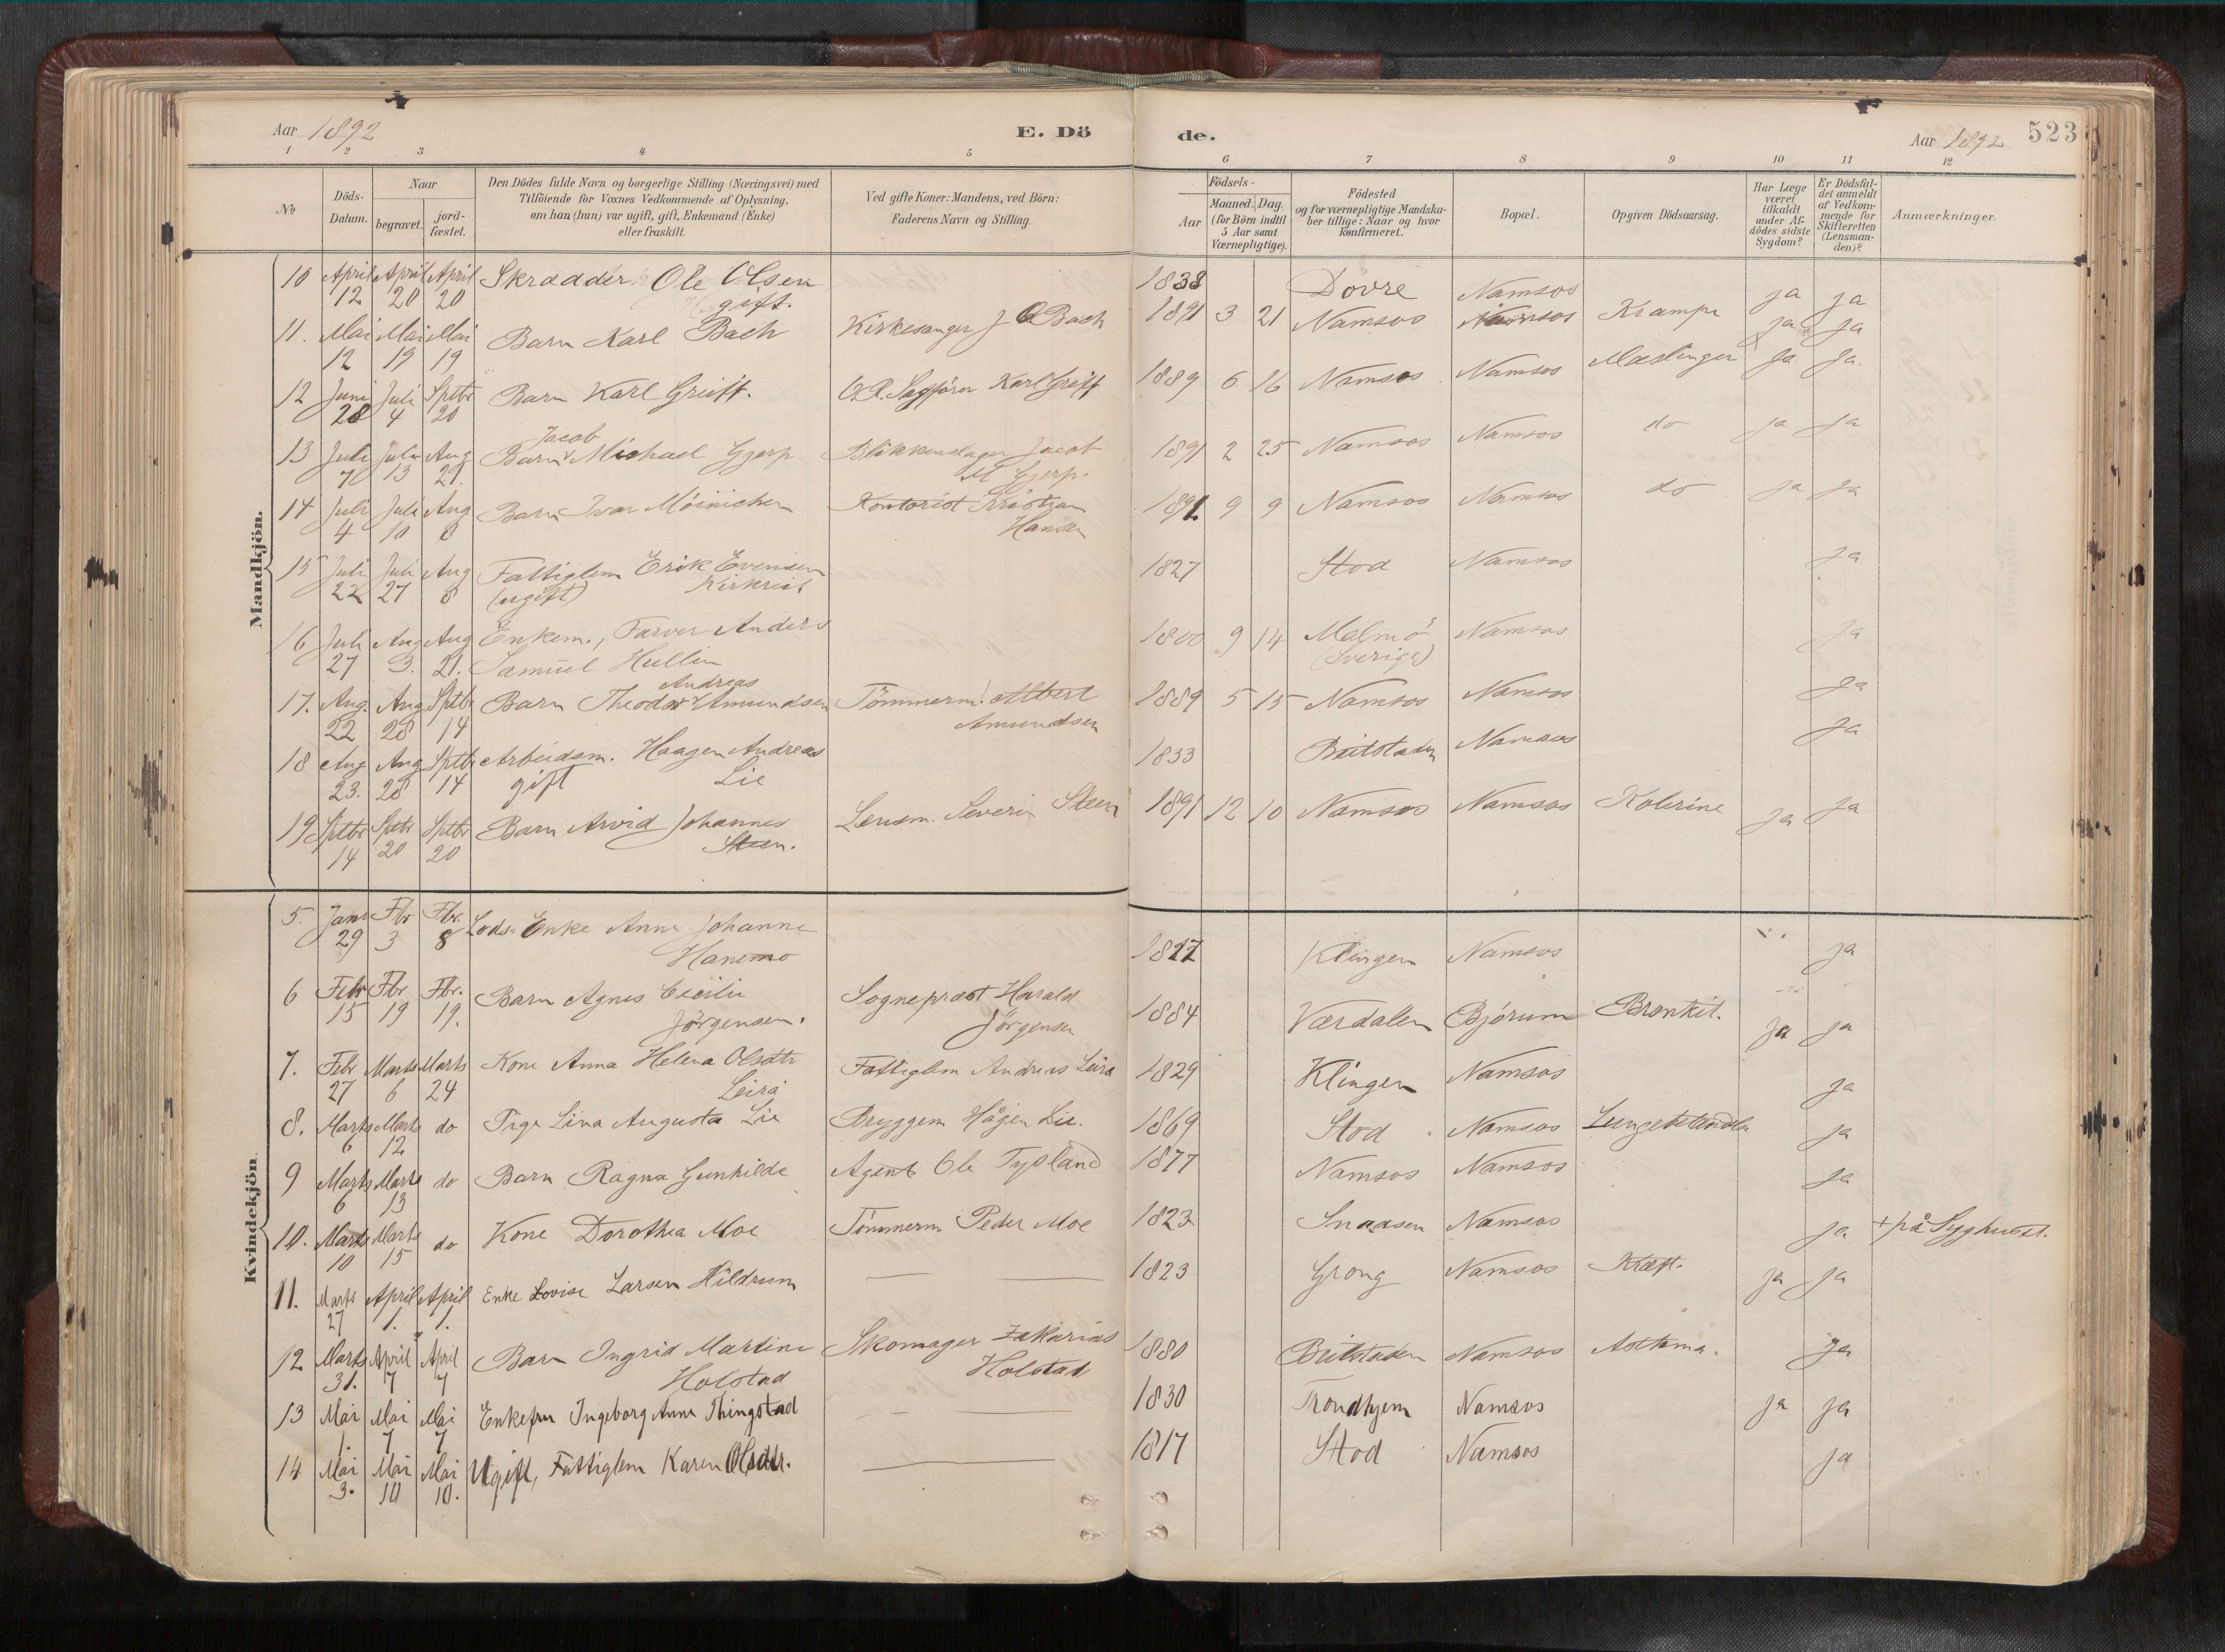 Aar 1892
E. Dö
de.
Aar 1892
523
1 2 3 4 5 6 7 8 9 10 11 12
No
Döds-Datum.
Naar
begravet.
jord-fæstet.
Den Dödes fulde Navn og borgerlige Stilling (Næringsvei) med
Tilföiende for Voxnes Vedkommende af Oplysning,
om han (hun) var ugift, gift, Enkemand (Enke)
eller fraskilt.
Ved gifte Koner: Mandens, ved Börn:
Faderens Navn og Stilling.
Födsels-
Aar
Maaned. Dag.
(for Börn indtil
5 Aar samt
Værnepligtige).
Födested
og for værnepligtige Mandska-
ber tillige: Naar og hvor
Konfirmeret.
Bopæl.
Opgiven Dödsaarsag.
Har Læge
været
tilkaldt
under Af-
dödes sidste
Sygdom?
Er Dödsfal-
det anmeldt
af Vedkom-
mende for
Skifteretten
(Lensman-
den)?
Anmærkninger.
Mandkjön.
10 April 12 April 20 April 20 Skrædder Ole Olsen gift. 1838 Dovre Namsos ja ja
11. Mai 12 Mai 19 Mai 19 Barn Karl Bach Kirkesanger J Bach 1891 3 21 Namsos Namsos Krampe ja ja
12 Juni 28 Juli 4 Sptbr 20 Barn Karl Greift. O.R. Sagförer Karl Greift 1889 6 16 Namsos Namsos Mæslinger ja ja.
13 Juli 7 Juli 13 Aug 21. Barn Jacob Michael Gjerp Blikkenslager Jacob M Gjerp. 1891 2 25 Namsos Namsos do ja ja
14 Juli 4 Juli 10 Aug 8 Barn Ivar Möinichen Kontorist Kristian 1891 9 9 Namsos Namsos do ja ja
15 Juli 22 Juli 27 Aug 8 Fattiglem Erik Evensen (ugift) 1827 Stod Namsos ja
16 Juli 27 Aug 3. Aug 21. Enkem., Farver Anders Samuel Hullin 1800 9 14 Malmö (Sverige) Namsos ja
17. Aug. 22 Aug 28 Sptbr 14 Barn Theodor Andreas Amundsen Tömmerm. Albert Amundsen 1889 5 15 Namsos Namsos ja
18 Aug 23. Aug 28 Sptbr 14 Arbeidsm. Haagen Andreas Lie gift 1833 Beitstaden Namsos ja
19 Sptbr 14 Sptbr 20 Sptbr 20 Barn Arvid Johannes Steen. Lensm. Severin Steen 1891 12 10 Namsos Namsos Kolerine ja ja
Kvindekjön.
5. Janr 29 Fbr 3 Fbr. 8 Lods-Enke Anne Johanne Hanemo Klingen Namsos ja
6 Febr 15 Fbr 19 Fbr. 19. Barn Agnes Cecilie Jörgensen. Sogneprest Harald Jörgensen 1884 Værdalen Bjørum Bronkit. ja ja
7. Febr 27 Marts 6 Marts 24 Kone Anna Helena Olsdtr Leira Fattiglem Andreas Leira 1829 Klingen Namsos ja
8. Marts 6 Marts 12 do Pige Lina Augusta Lie Bryggem Hågen Lie. 1869 Stod Namsos ja
9 Marts 6 Marts 13 do Barn Ragna Gunhilde Agent Ole Tysland 1877 Namsos Namsos ja
10. Marts 10 Marts 15 do Kone Dorothea Moe Tömmerm Peder Moe 1823 Snaasen Namsos ja + på Syghuset.
11. Marts 27 April 1. April 1. Enke Lovise Larsen Hildrum 1823 Grong Namsos Kræft. ja ja
12 Marts 31. April 7 April 7 Barn Ingrid Martine Holstad Skomager Zakarias Holstad 1880 Beitstaden Namsos Asthma. ja
13 Mai 1. Mai 7 Mai 7 Enkefru Ingeborg Anna Thingstad 1830 Trondhjem Namsos ja ja
14 Mai 3. Mai 10 Mai 10. Ugift, Fattiglem Karen Olsdtr. 1817 Stod Namsos ja